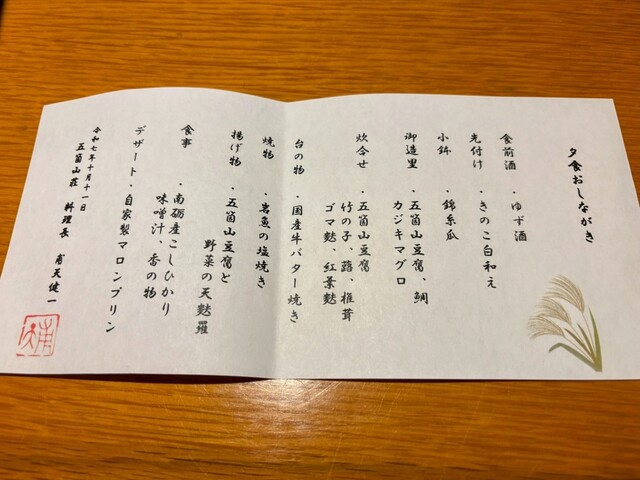 夕食おしながき
食前酒 ・ゆず酒
先付け ・きのこ白和え
小鉢 ・錦糸瓜
御造里 ・五箇山豆腐、鯛
カジキマグロ
炊合せ ・五箇山豆腐
竹の子、蕗、椎茸
ゴマ麩、紅葉麩
台の物 ・国産牛バター焼き
焼物 ・岩魚の塩焼き
揚げ物 ・五箇山豆腐と
野菜の天麩羅
食事 ・南砺産こしひかり
味噌汁、香の物
デザート・自家製マロンプリン
令和七年十月十一日
五箇山荘 料理長 甫天健一